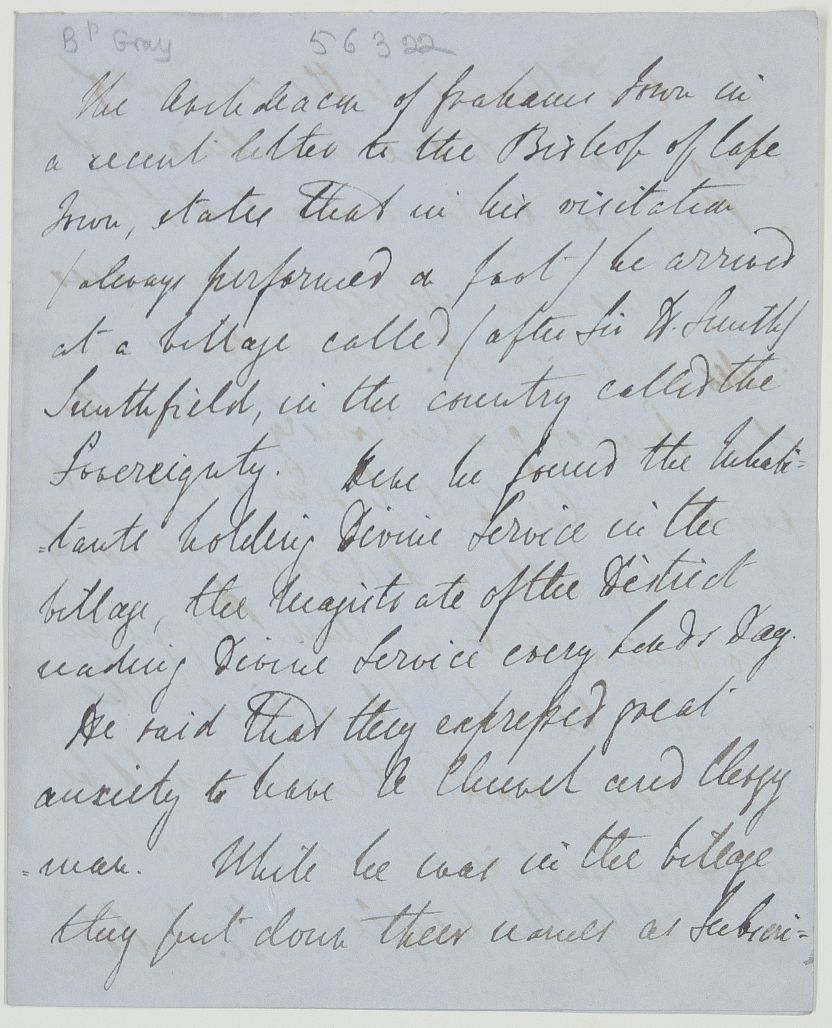 Bp Gray 56322
The Archdeacon of Grahams Town in
a recent letter to the Bishop of Cape
Town, states that in his visitation
(always performed on foot) he arrived
at a village called (after Sir H. Smith)
Smithfield, in the country called the
Sovereignty. Here he found the Inhabi=
=tants holding Divine Service in the
village, the Magistrate of the District
reading Divine Service every Lords Day.
He said that they expressed great
anxiety to have a Church and Clergy
=man. While he was in the village
they put down their names as Subscri=